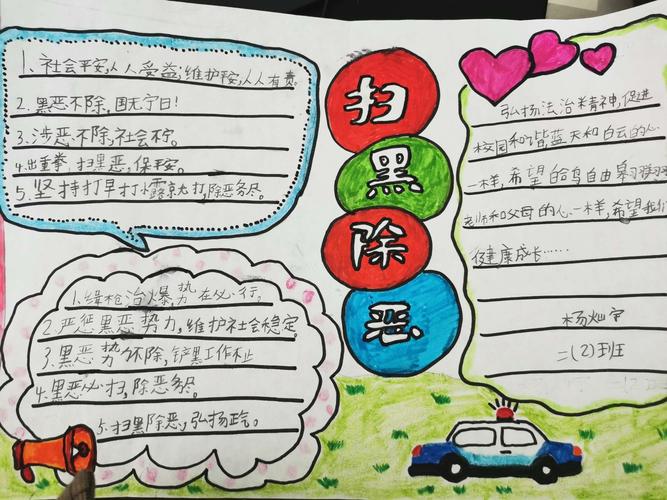 1、社会平安,人人受益;维护平安,人人有责。
2、黑恶不除,国无宁日!
3、涉恶不除,社会不宁。
4、出重拳,扫黑恶,保平安。
5、坚持打早打小露头就打,除恶务尽。
扫
黑
除
恶
1、缉枪治爆,势在必行。
2、严惩黑恶势力,维护社会稳定。
3、黑恶势不除,铲黑工作不止
4、黑恶必扫,除恶务尽。
5、扫黑除恶,弘扬正气。
弘扬法治精神,促进
校园和谐蓝天和白云的心
一样,希望 鸟自由
老师和父母的心一样,希望我们
健康成长……
杨灿宇
二(2)班